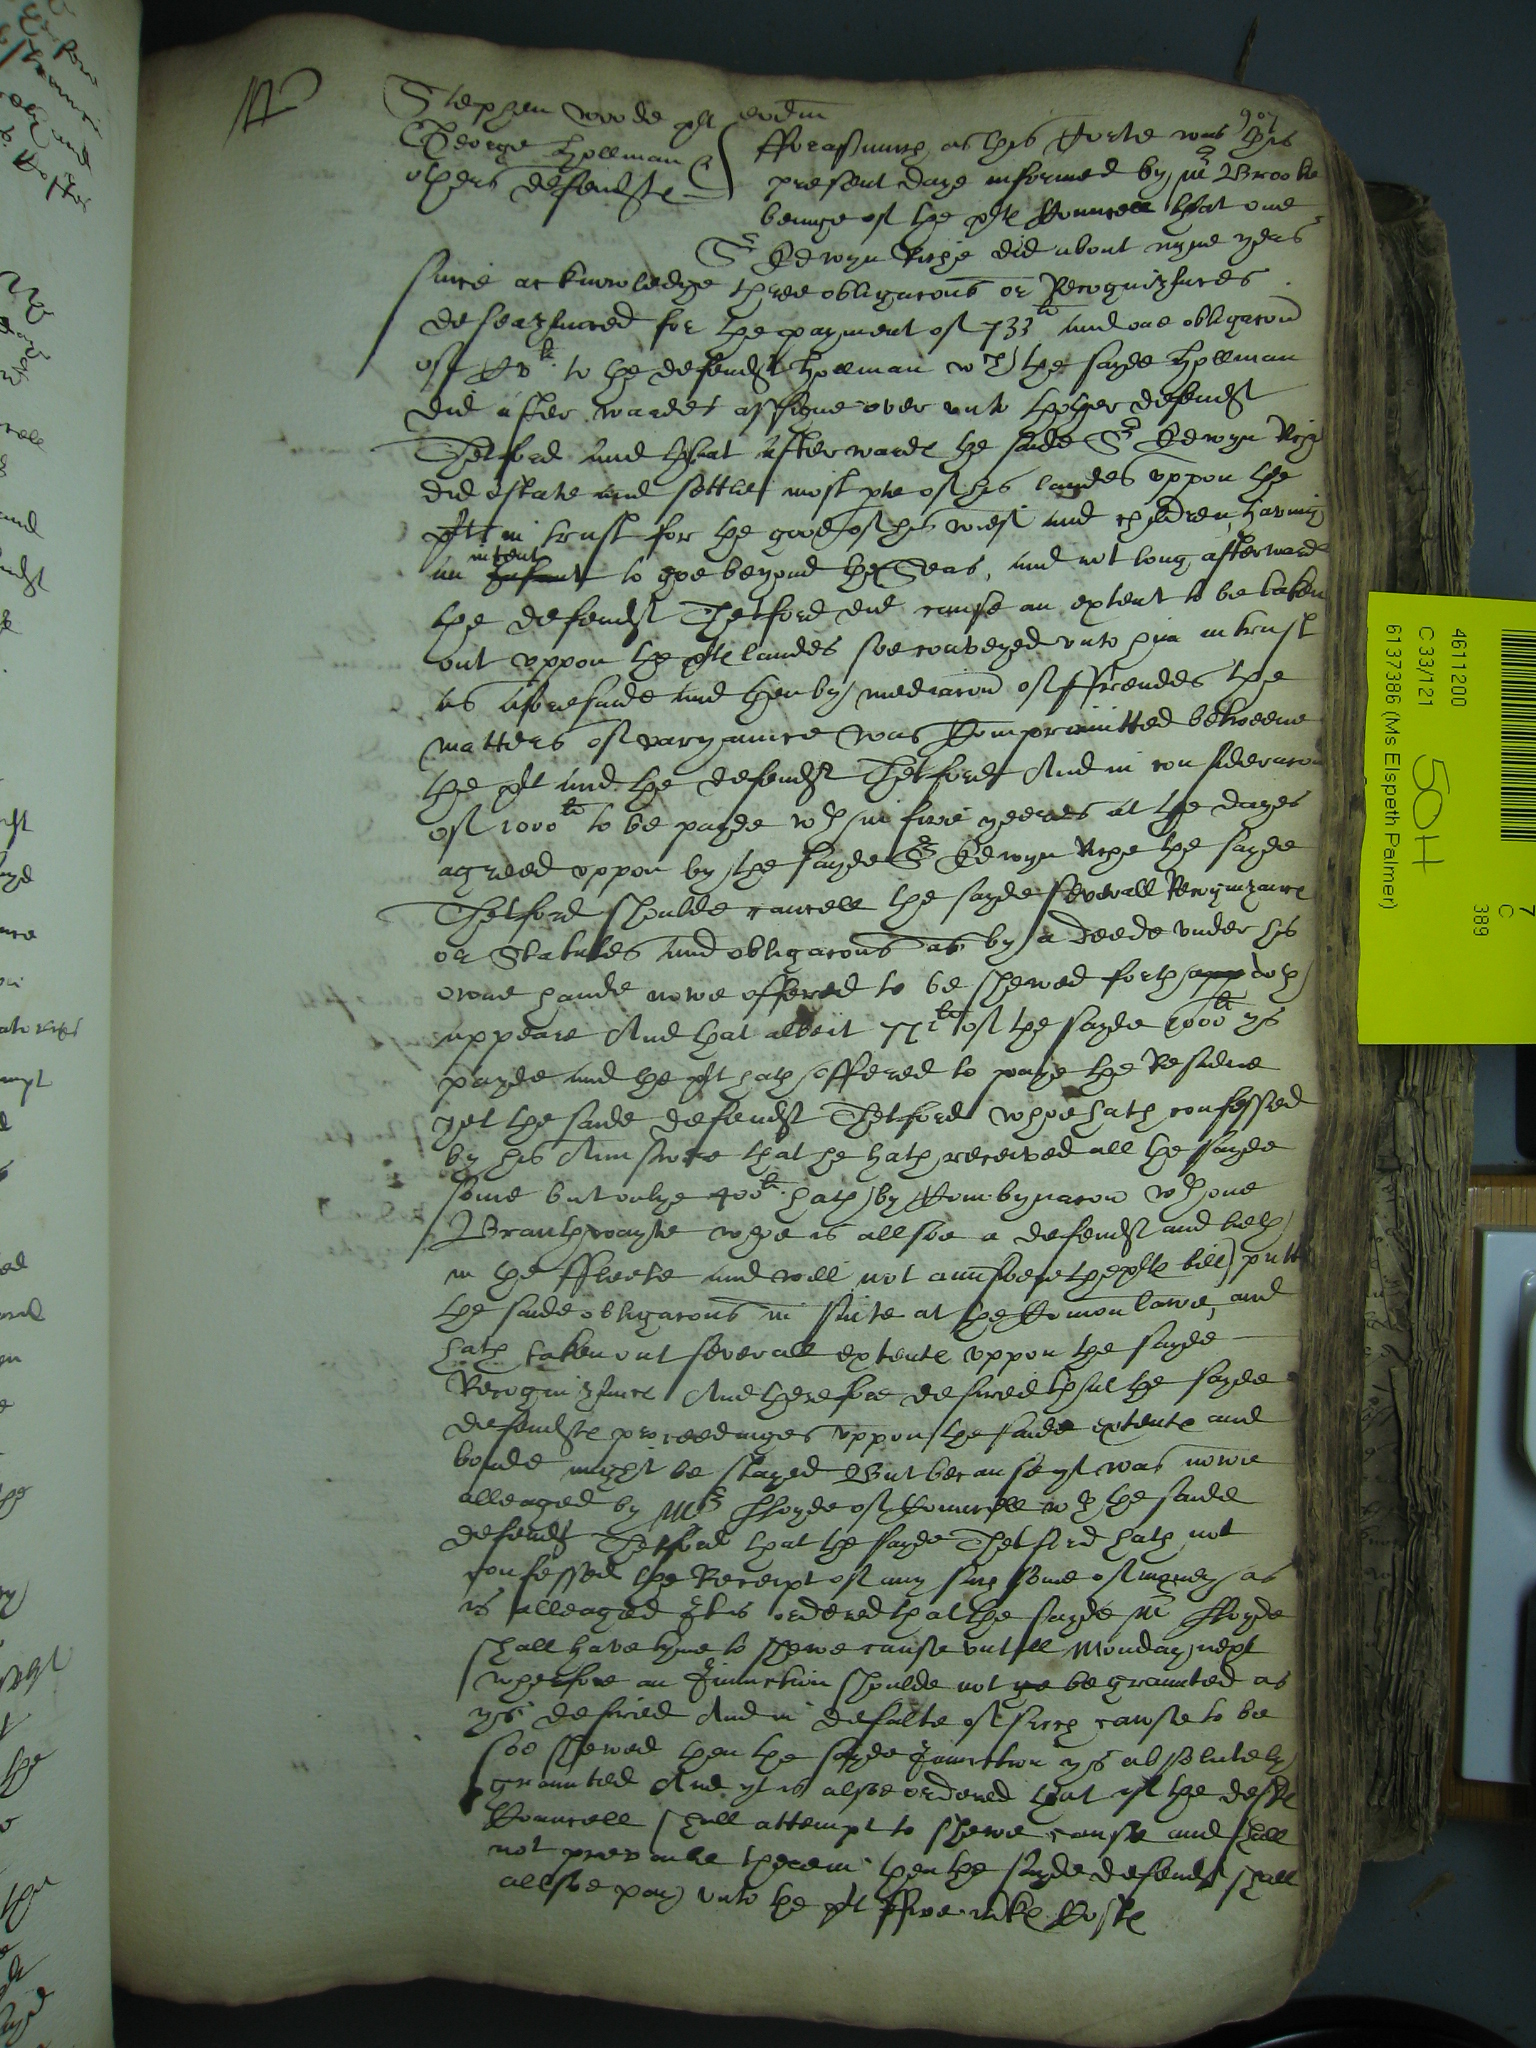 907
Stephen Woode plt eodm
George Hollman &
others defendtes
fforasmuch as this Corte was this
present daye informed by Mr Brooke
beinge of the pltes Councell that one
Sr Edwyn Riche did about nyne yeres
since acknowledge three obligacons or Recognizances
defeazanced for the payment of 733li and one obligacon
of li to the defendt Hollman wch the sayde Hollman
did afterwardes assigne over unto thother defendt
Thetford And that afterwardes the saide Sr Edwyn Rich
did estate and settle most pte of his landes uppon the
plt in trust for the good of his wief and children, having
an infent intent to goe beyond the Seas, and not long afterwardes
the defendt Thetford did cause an extent to be taken
out uppon the pltes landes soe conveyed unto him in trust
as aforesaide and then by mediacon of ffrendes the
matters of varyaunce was Compromitted betweene
the plt and the defendt Thetford And in consideracon
of 1000li to be payde wthin five yeeres at the dayes
agreed uppon by the sayde Sr Edwyn Riche the sayde
Thetford shoulde cancell the sayde severall Recognizances
or Statutes and obligacons as by a deede under his
owne hande nowe offered to be shewed forth app doth
appeare And that albeit li of the sayde 1000li ys
payde and the plt hath offered to paye the Residue
yet the saide defendt Thetford whoe hath confessed
by his Aunswere that he hath received all the sayde
some but onlye 400li hath by Combynacon wth one
Branthwayte whoe is allsoe a defendt and lieth
in the ffleete and will not aunswere the pltes bill putt
the saide obligacons in suite at the Comon lawe, and
hath taken out severall extentes uppon the sayde
Recognizances And therefore desired that the sayde
defendtes proceedinges uppon the saide extentes and
bonde might be stayed But because yt was nowe
alleaged by Mr ffloyde of Councell wth the saide
defendt Thetford that the sayde Thetford hath not
confessed the Receipt of any such some of money as
is alleaged It is ordered that the sayde Mr ffloyde
shall have tyme to shewe cause untill Monday next
wherfore an Iniunction shoulde not ye be graunted as
ys desired And in defalte of such cause to be
soe shewed then the sayde Iniunction ys absolutely
graunted And yt is alsoe ordered that yf the deftes
Councell shall attempt to shewe cause and shall
not prevaile therein then the sayde defendt shall
allsoe pay unto the plt ffive markes Costes
4611200
C 33/121
61137386 (Ms Elspeth Palmer)
50H
7
C
389